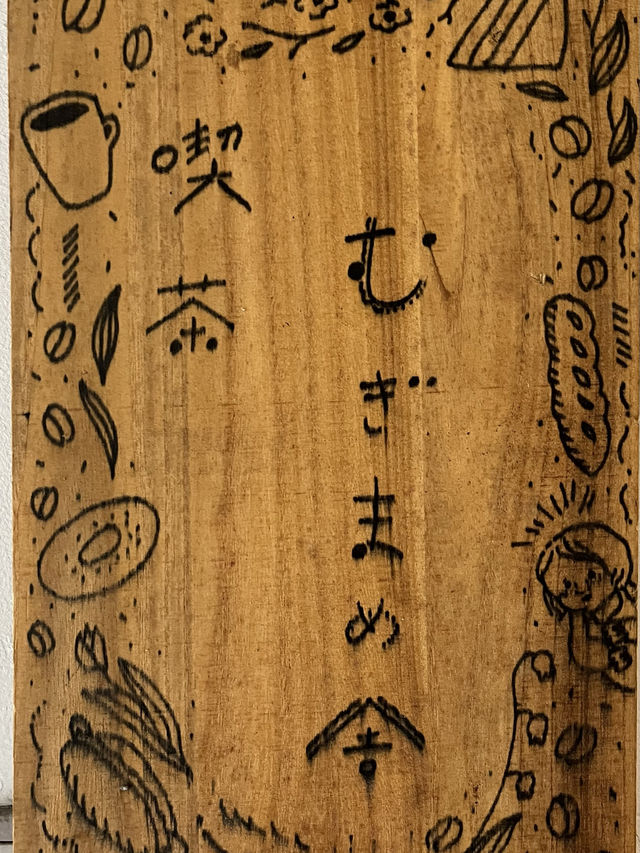 むぎまめ舎
喫茶